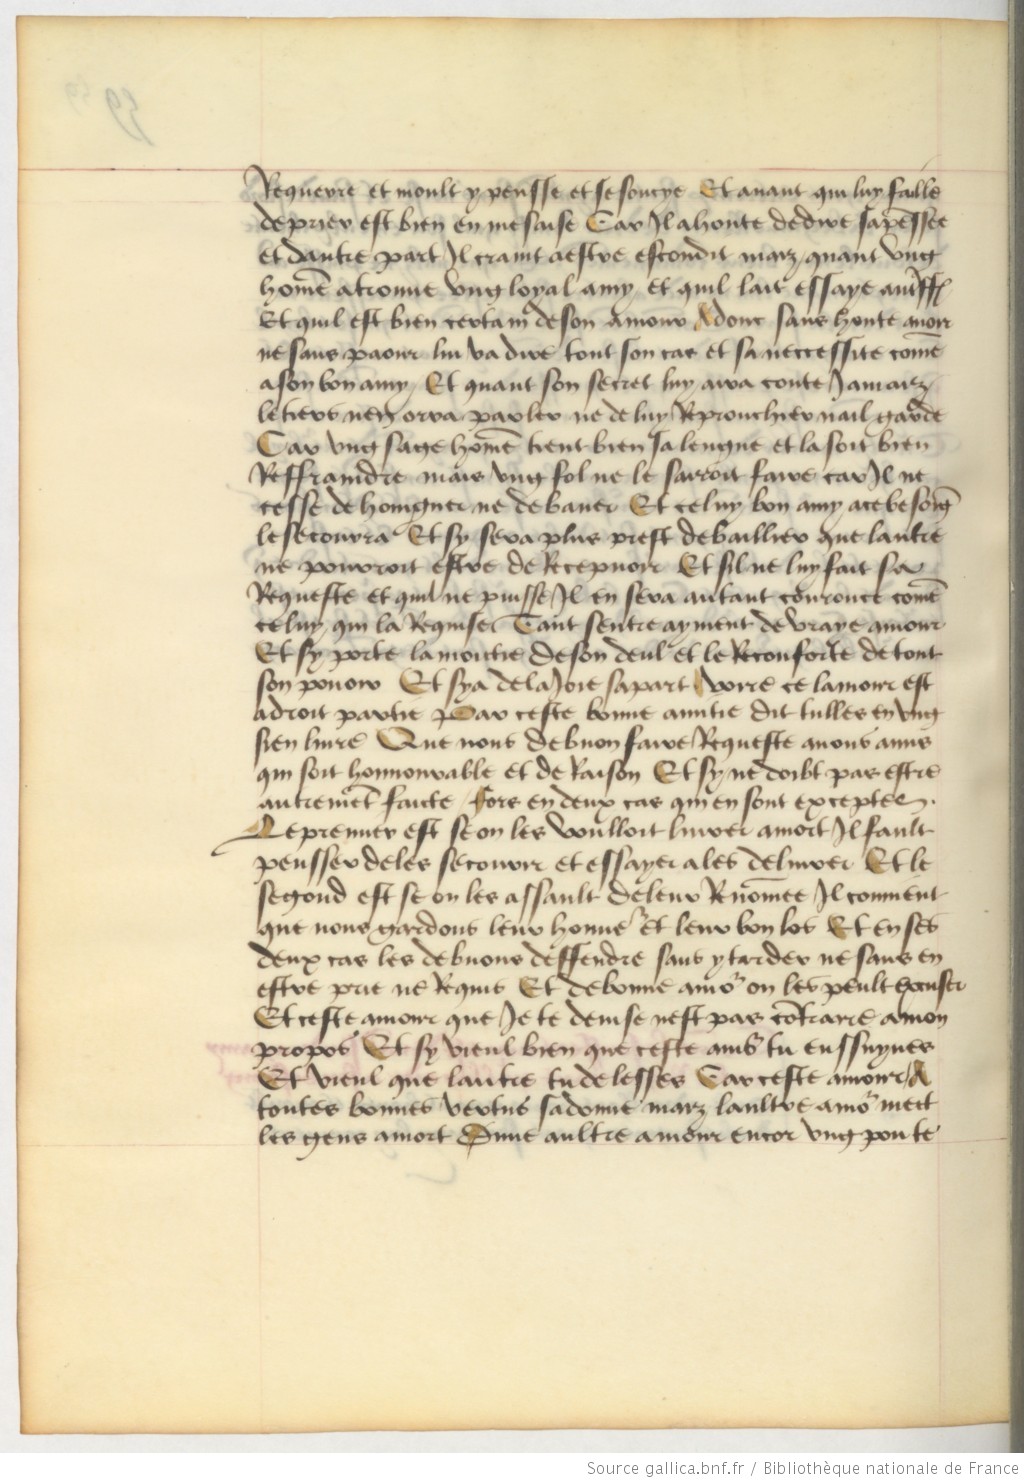 Requerre et moult y pensse et se soucye Et auant qui luy faille
de prier est bien en mesaise Car Il a honte de dire sa pēssee
et dautre part Il craint a estre escondit maiz quant vng
homē a trouue vng loyal amy et quil lait essaye
Et quil est bien certain de son amour Adonc sans honte auoir
ne sans paour lui va dire tout son cas et sa neccessite comē
a son bon amy Et quant son secret luy aura conte Jamaiz
le tiers nen orra parler ne de luy Reprouchier nail garde
Car vng sage homē tient bien sa lengue et la soit bien
Reffraindre mais vng fol ne le sarroit faire car Il ne
cesse de hongner ne de bauer Et celuy bon amy a ce besong
le secourra Et sy sera plus prest de baillier que lautre
ne pourroit estre de Recepuoir Et sil ne luy fait sa
Requeste et quil ne puisse Il en sera autant courouce comē
celuy qui la Requise Tant sentre ayment de vraye amour
Et sy porte la moutie de son deul et le Reconforte de tout
son pouoir Et sy a de la Joie sa part voire ce lamour est
a droit partie Par ceste bonne amitie dit tulles en vng
sien liure Que nous debuon faire Requeste a nous amis
qui soit honnourable et de Raison Et sy ne doibt pas estre
autremēt faicte fors en deux cas qui en sont exceptez.
Le premier est se on les voulloit liurer a mort Il fault
pensser de les secourir et essayer a les deliurer Et le
segond est se on les assault de leur Renōmee Il comuient
que nous gardons leur honneʳ et leur bon los Et en ses
deux cas les debuons deffendre sans y tarder ne sans en
estre prie ne Requis Et de bonne amoʳ on les peult excuser
Et ceste amour que Je te deuise nest pas cōtraire a mon
propos Et sy vieul bien que ceste amoʳ tu enssuyues
Et vieul que lautre tu delesses Car ceste amour A
toutes bonnes vertus sadonne maiz laultre amoʳ mect
les gens a mort Dune aultre amour encor vng pou te